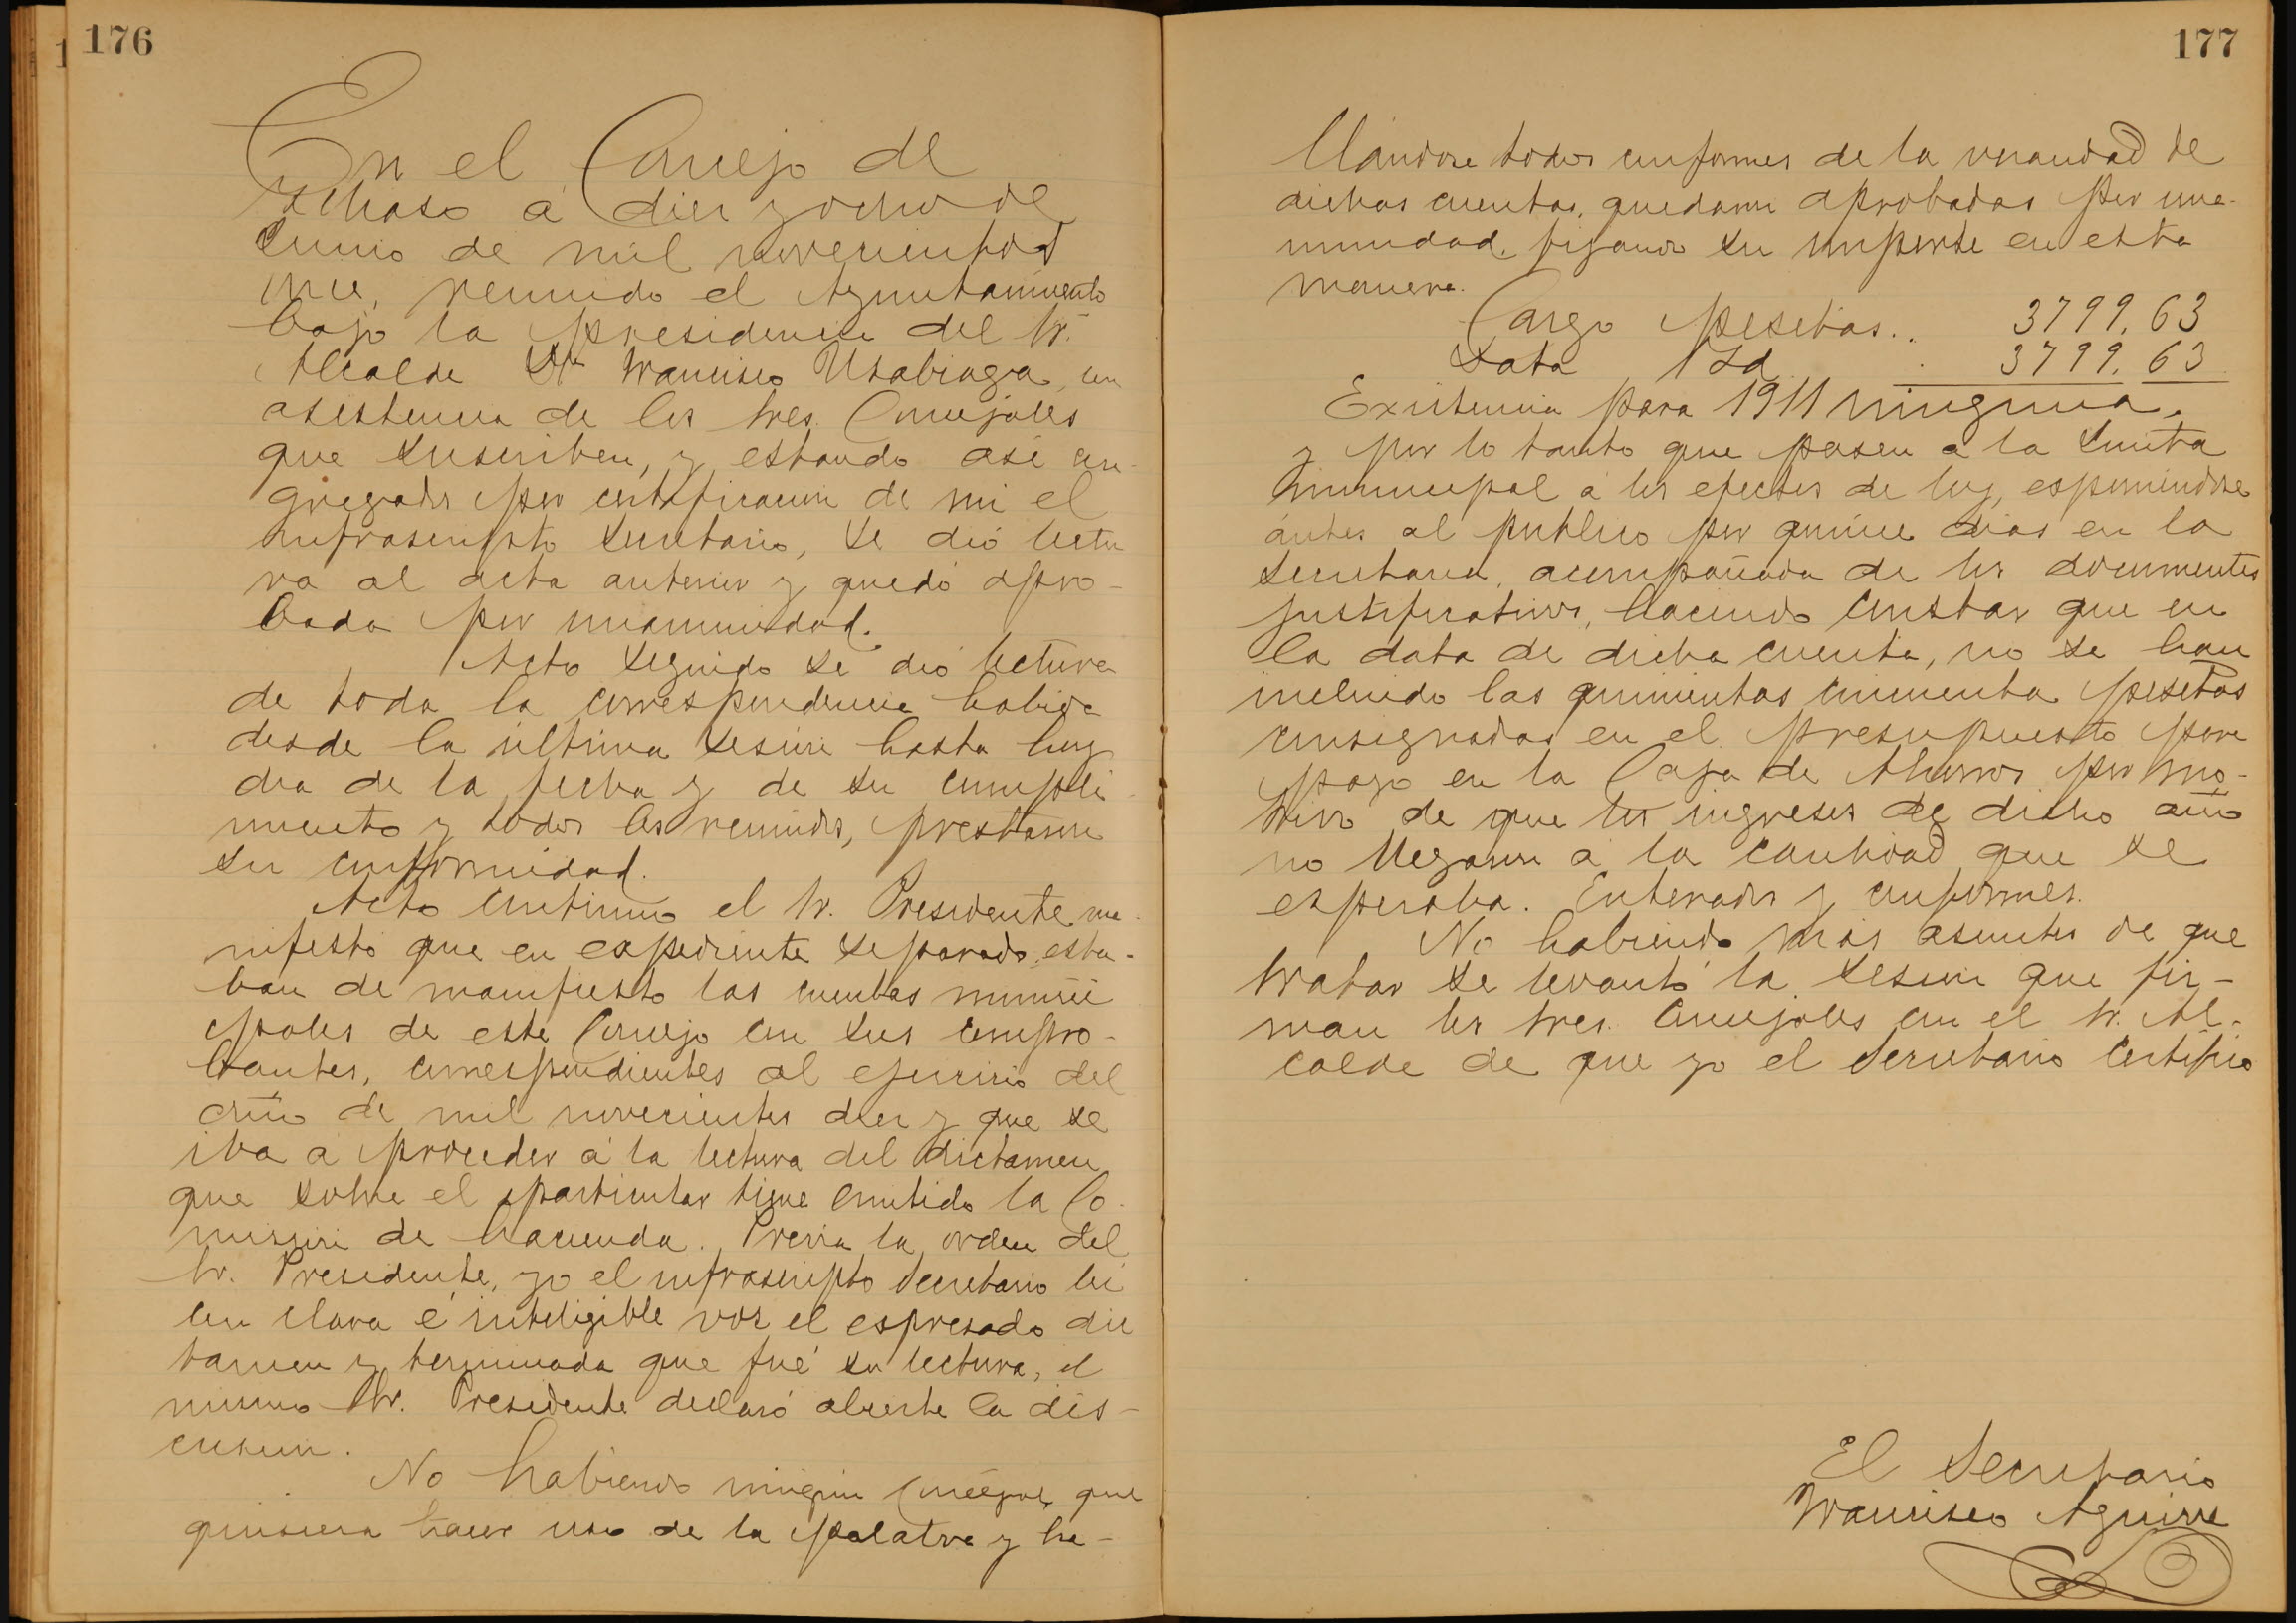 176
En el Concejo de
Ichaso á diez y ocho de
Junio de mil novecientos
once, reunido el Ayuntamiento
bajo la presidencia del Sr.
Alcalde Dn Francisco Usabiaga, con
asistencia de los tres Concejales
que suscriben, y estando asi con-
gregados por certificacion de mi el
infrascripto Secretario, se dió lectu
ra al acta anterior y quedó apro-
bada por unanimidad.
Acto seguido se dió lectura
de toda la correspondencia habida
desde la última sesion hasta hoy
dia de la fecha y de su cumpli
miento y todos los reunidos, prestaron
su conformidad.
Acto continuo el Sr. Presidente ma-
nifestó que en expediente separado, esta-
ban de manifiesto las cuentas munici
pales de este Concejo con sus compro-
bantes, correspondientes al ejercicio del
año de mil novecientos diez y que se
iba á proceder á la lectura del dictamen
que sobre el particular tiene emitido la Co-
mision de hacienda. Previa la orden del
Sr. Presidente, yo el infrascripto Secretario lei
con clara é inteligible voz el espresado dic
tamen y terminada que fué su lectura, el
mismo Sr. Presidente declaró abierta la dis-
cusion.
No habiendo ningun Concejal que
quisiera hacer uso de la palabra y ha-
177
llandose todos conformes de la veracidad de
dichas cuentas, quedaron aprobadas por una-
nimidad, fijando su importe en esta
manera.
Cargo pesetas.. 3799,63
Data Id 3799,63
Existencia para 1911 ninguna.
y por lo tanto que pasen a la Junta
municipal á los efectos de ley, esponiendose
ántes al publico por quince dias en la
Secretaria, acompañada de los documentos
justificativos, haciendo constar que en
la data de dicha cuenta, no se han
incluido las quinientas cincuenta pesetas
consignadas en el presupuesto para
pago en la Caja de Ahorros por mo-
tivo de que los ingresos de dicho año
no llegaron á la cantidad que se
esperaba. Enterados y conformes.
No habiendo más asuntos de que
tratar se levantó la sesion que fir-
man los tres Concejales con el Sr. Al-
calde de que yo el Secretario certifico
El Secretario
Francisco Aguirre